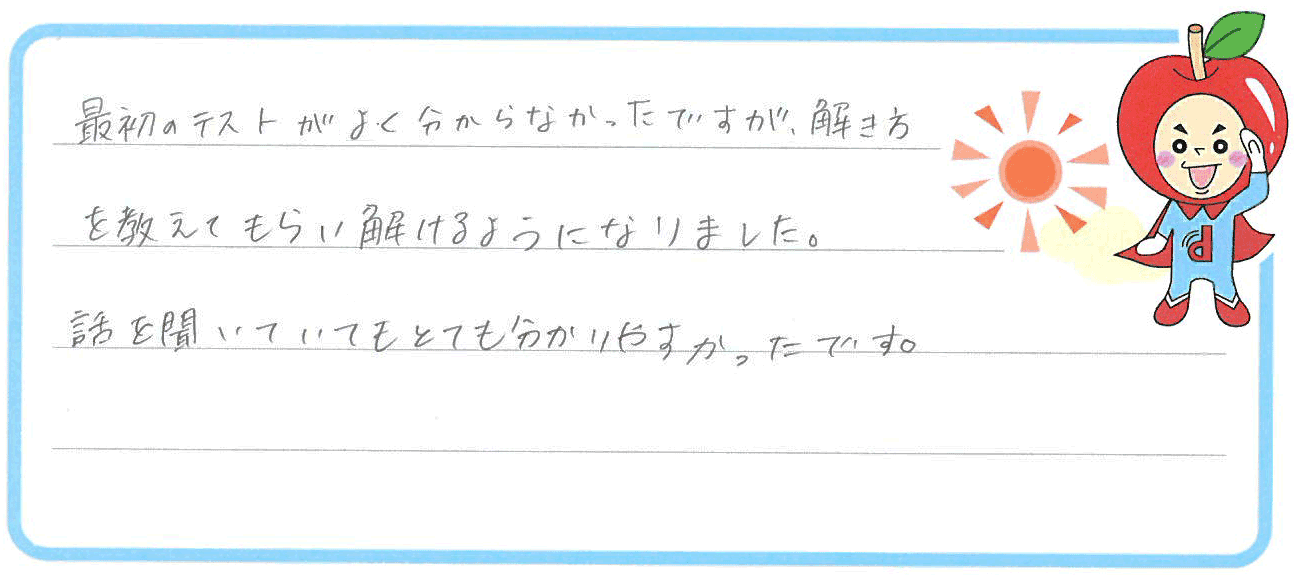 最初のテストがよく分からなかったですが、解き方
を教えてもらい解けるようになりました。
話を聞いていてもとても分かりやすかったです。